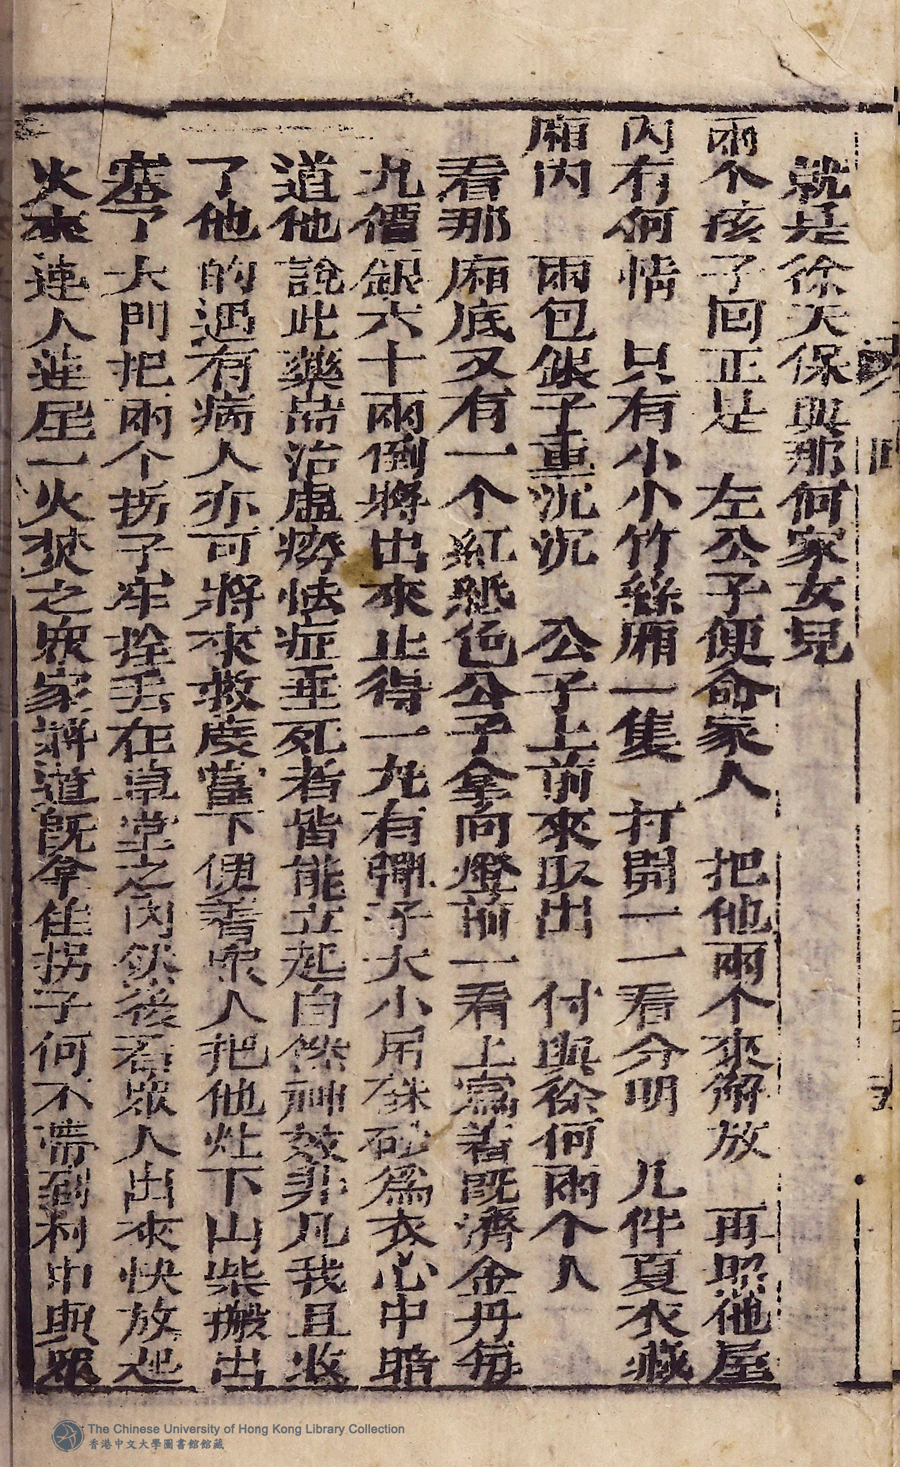 就是徐天保與那何家女兒
兩个孩子回正是　左公子便命家人　把他兩个來解放　再照他屋
內有何情　只有小小竹絲廂一隻　打開一一看分明　几件夏衣藏
廂內　兩包銀子重沉沉　公子上前來取出　付與徐何兩个人
看那廂底又有一个紅紙包公子拿向燈前一看上寫着既濟金丹每
丸價銀六十兩倒將出來止得一丸有彈子大小吊硃砂為衣心中暗
道他說此藥耑治虛癆怯症垂死者皆能立起自然神效非凡我且收
了他的遇有病人亦可將來救度當下便着众人把他灶下山柴搬出
塞了大門把兩个拐子牢拴丟在草堂之內然後着眾人出來快放起
火來連人連屋一火焚之眾家將道既拿住拐子何不帶到村中與眾
The Chinese University of Hong Kong Library Collection
香港中文大學圖書館館藏